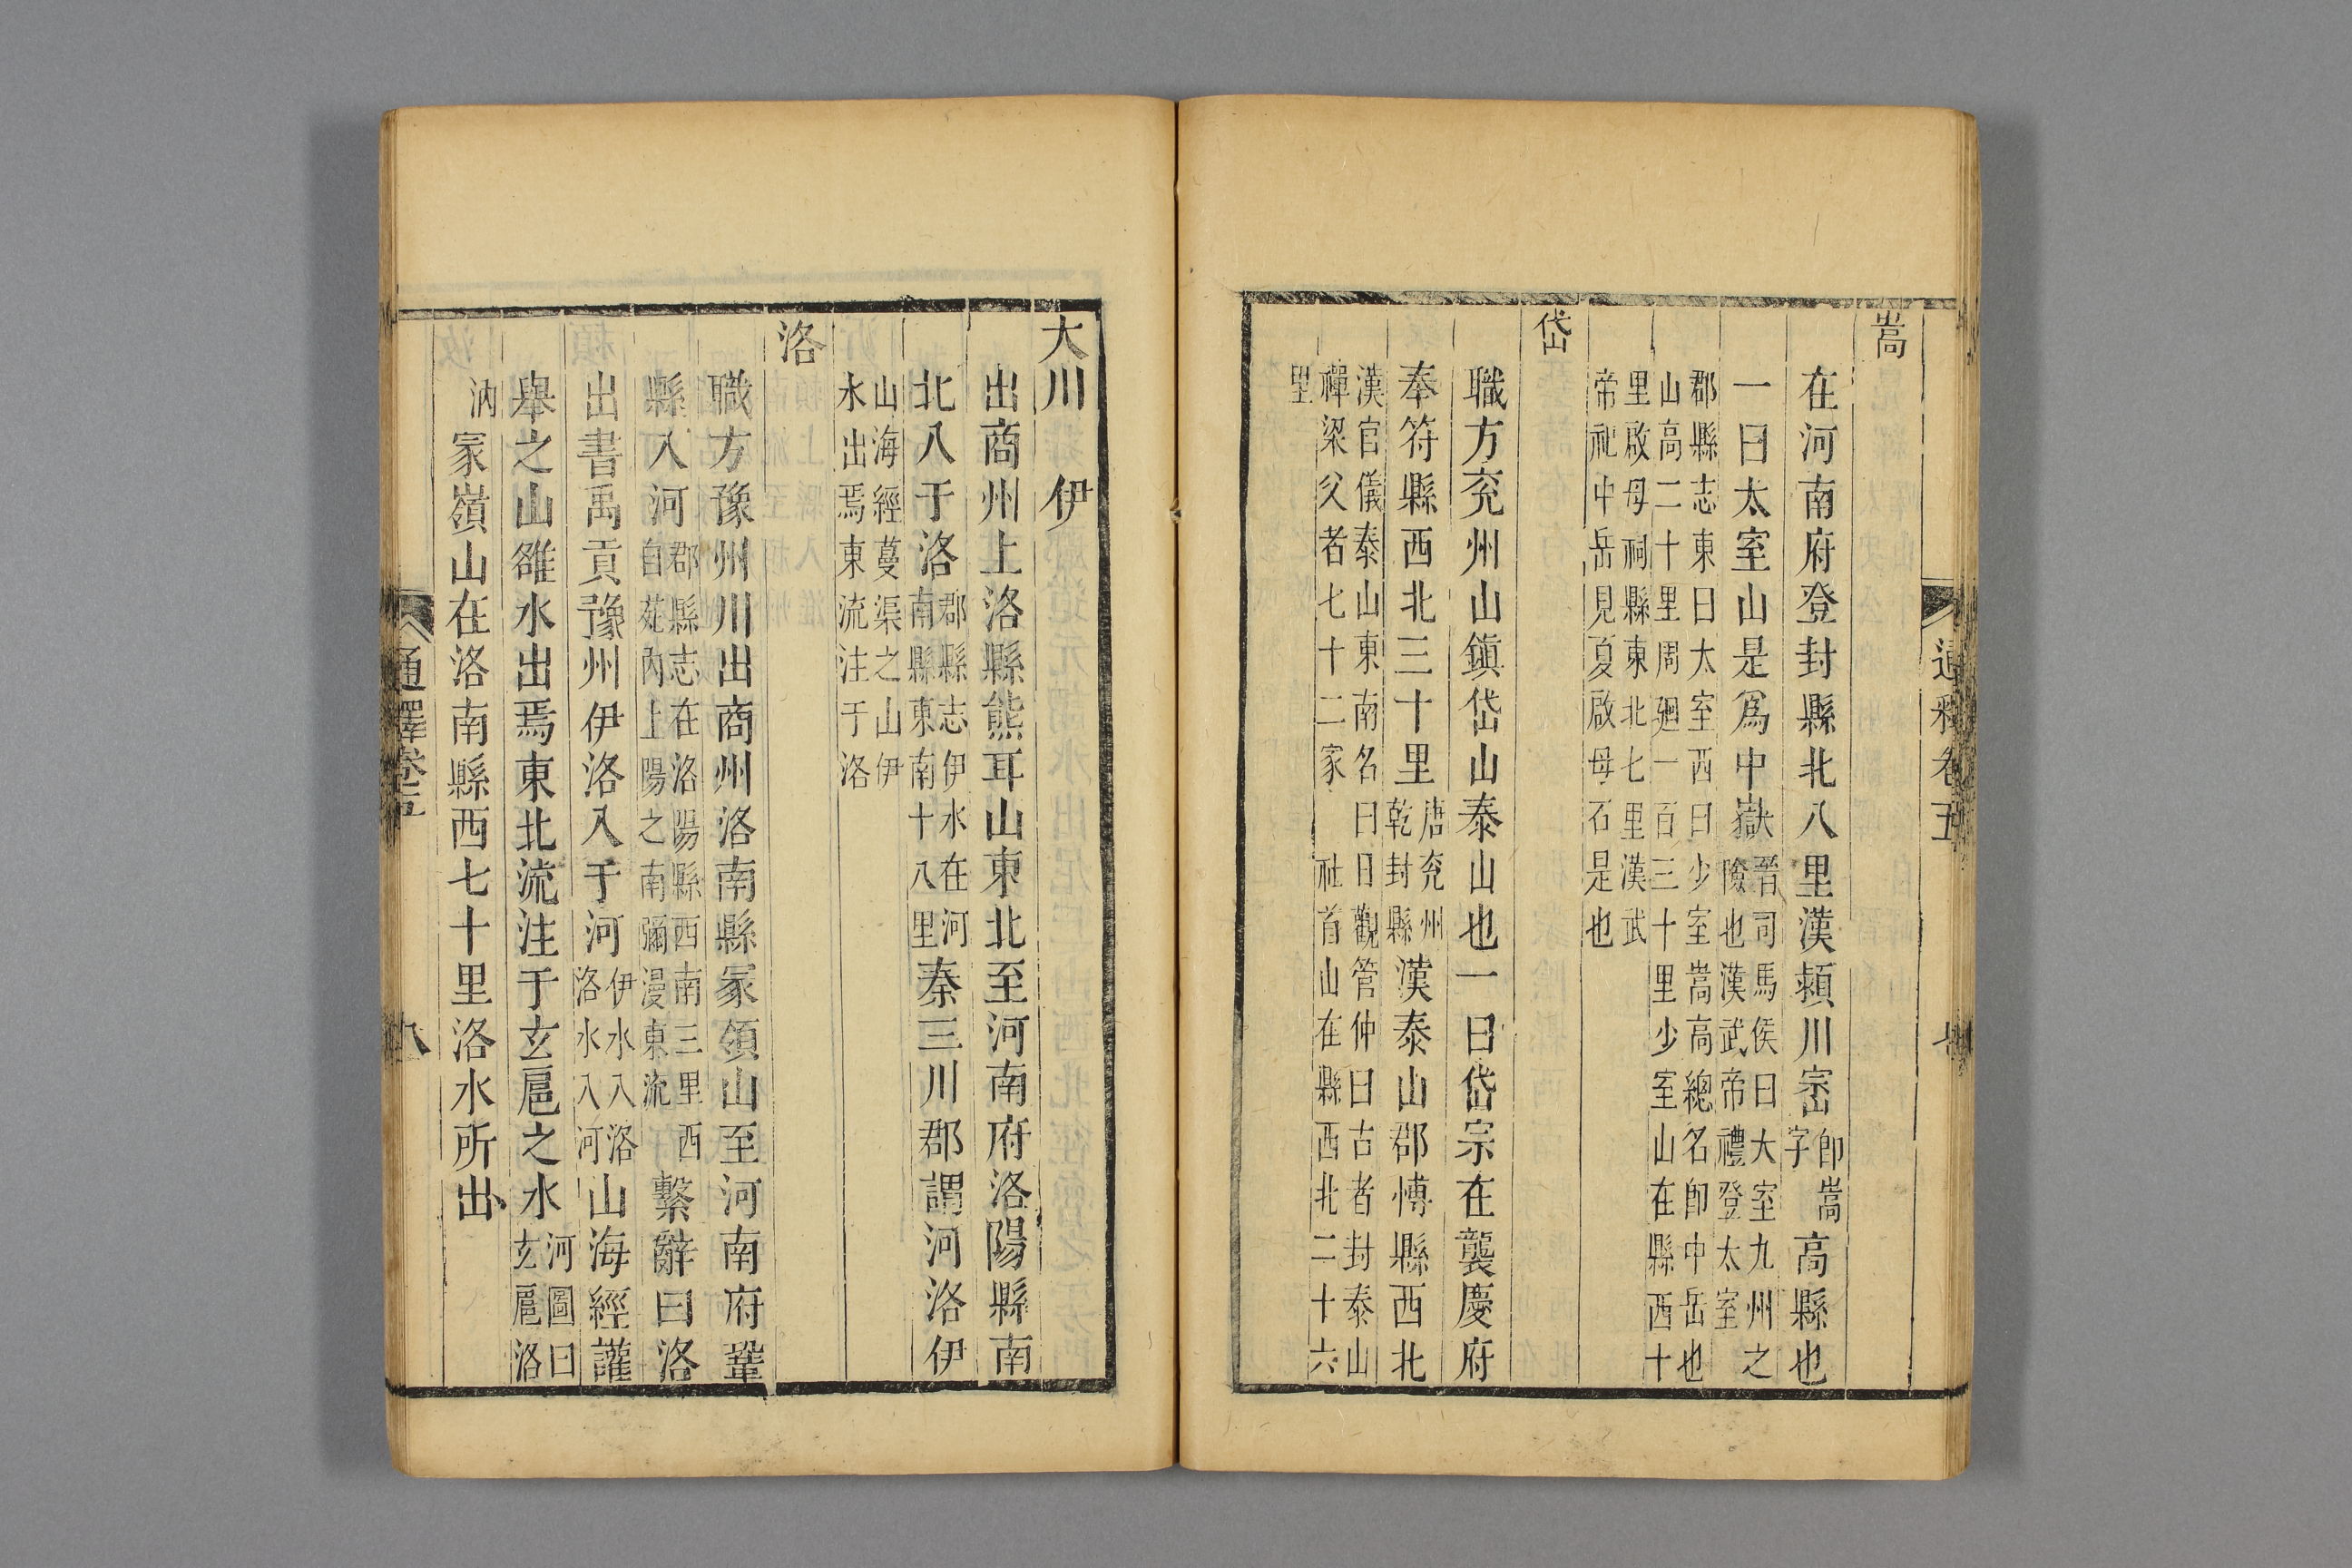 通釋卷五
嵩
在河南府登封縣北八里漢潁川崈卽嵩字高縣也
一曰太室山是爲中嶽晉司馬侯曰大室九州之險也漢武帝禮登太室
郡縣志東曰太室西曰少室嵩高總名卽中岳也山高二十里周廻一百三十里少室山在縣西十
里啟母祠縣東北七里漢武帝祀中岳見夏啟母石是也
岱
職方兖州山鎭岱山泰山也一曰岱宗在襲慶府
奉符縣西北三十里唐兖州乾封縣漢泰山郡愽縣西北
漢官儀泰山東南名曰日觀管仲曰古者封泰山禪梁父者七十二家社首山在縣西北二十六
里
大川 伊
出商州上洛縣熊耳山東北至河南府洛陽縣南
北入于洛郡縣志伊水在河南縣東南十八里秦三川郡謂河洛伊
山海經蔓渠之山伊水出焉東流注于洛
洛
職方豫州川出商州洛南縣冢領山至河南府鞏
縣入河郡縣志在洛陽縣西南三里西自苑內上陽之南彌漫東流繫辭曰洛
出書禹貢豫州伊洛入于河伊水入洛洛水入河山海經讙
舉之山雒水出焉東北流注于玄扈之水河圖曰玄扈洛
汭冢嶺山在洛南縣西七十里洛水所出
通釋卷五 八